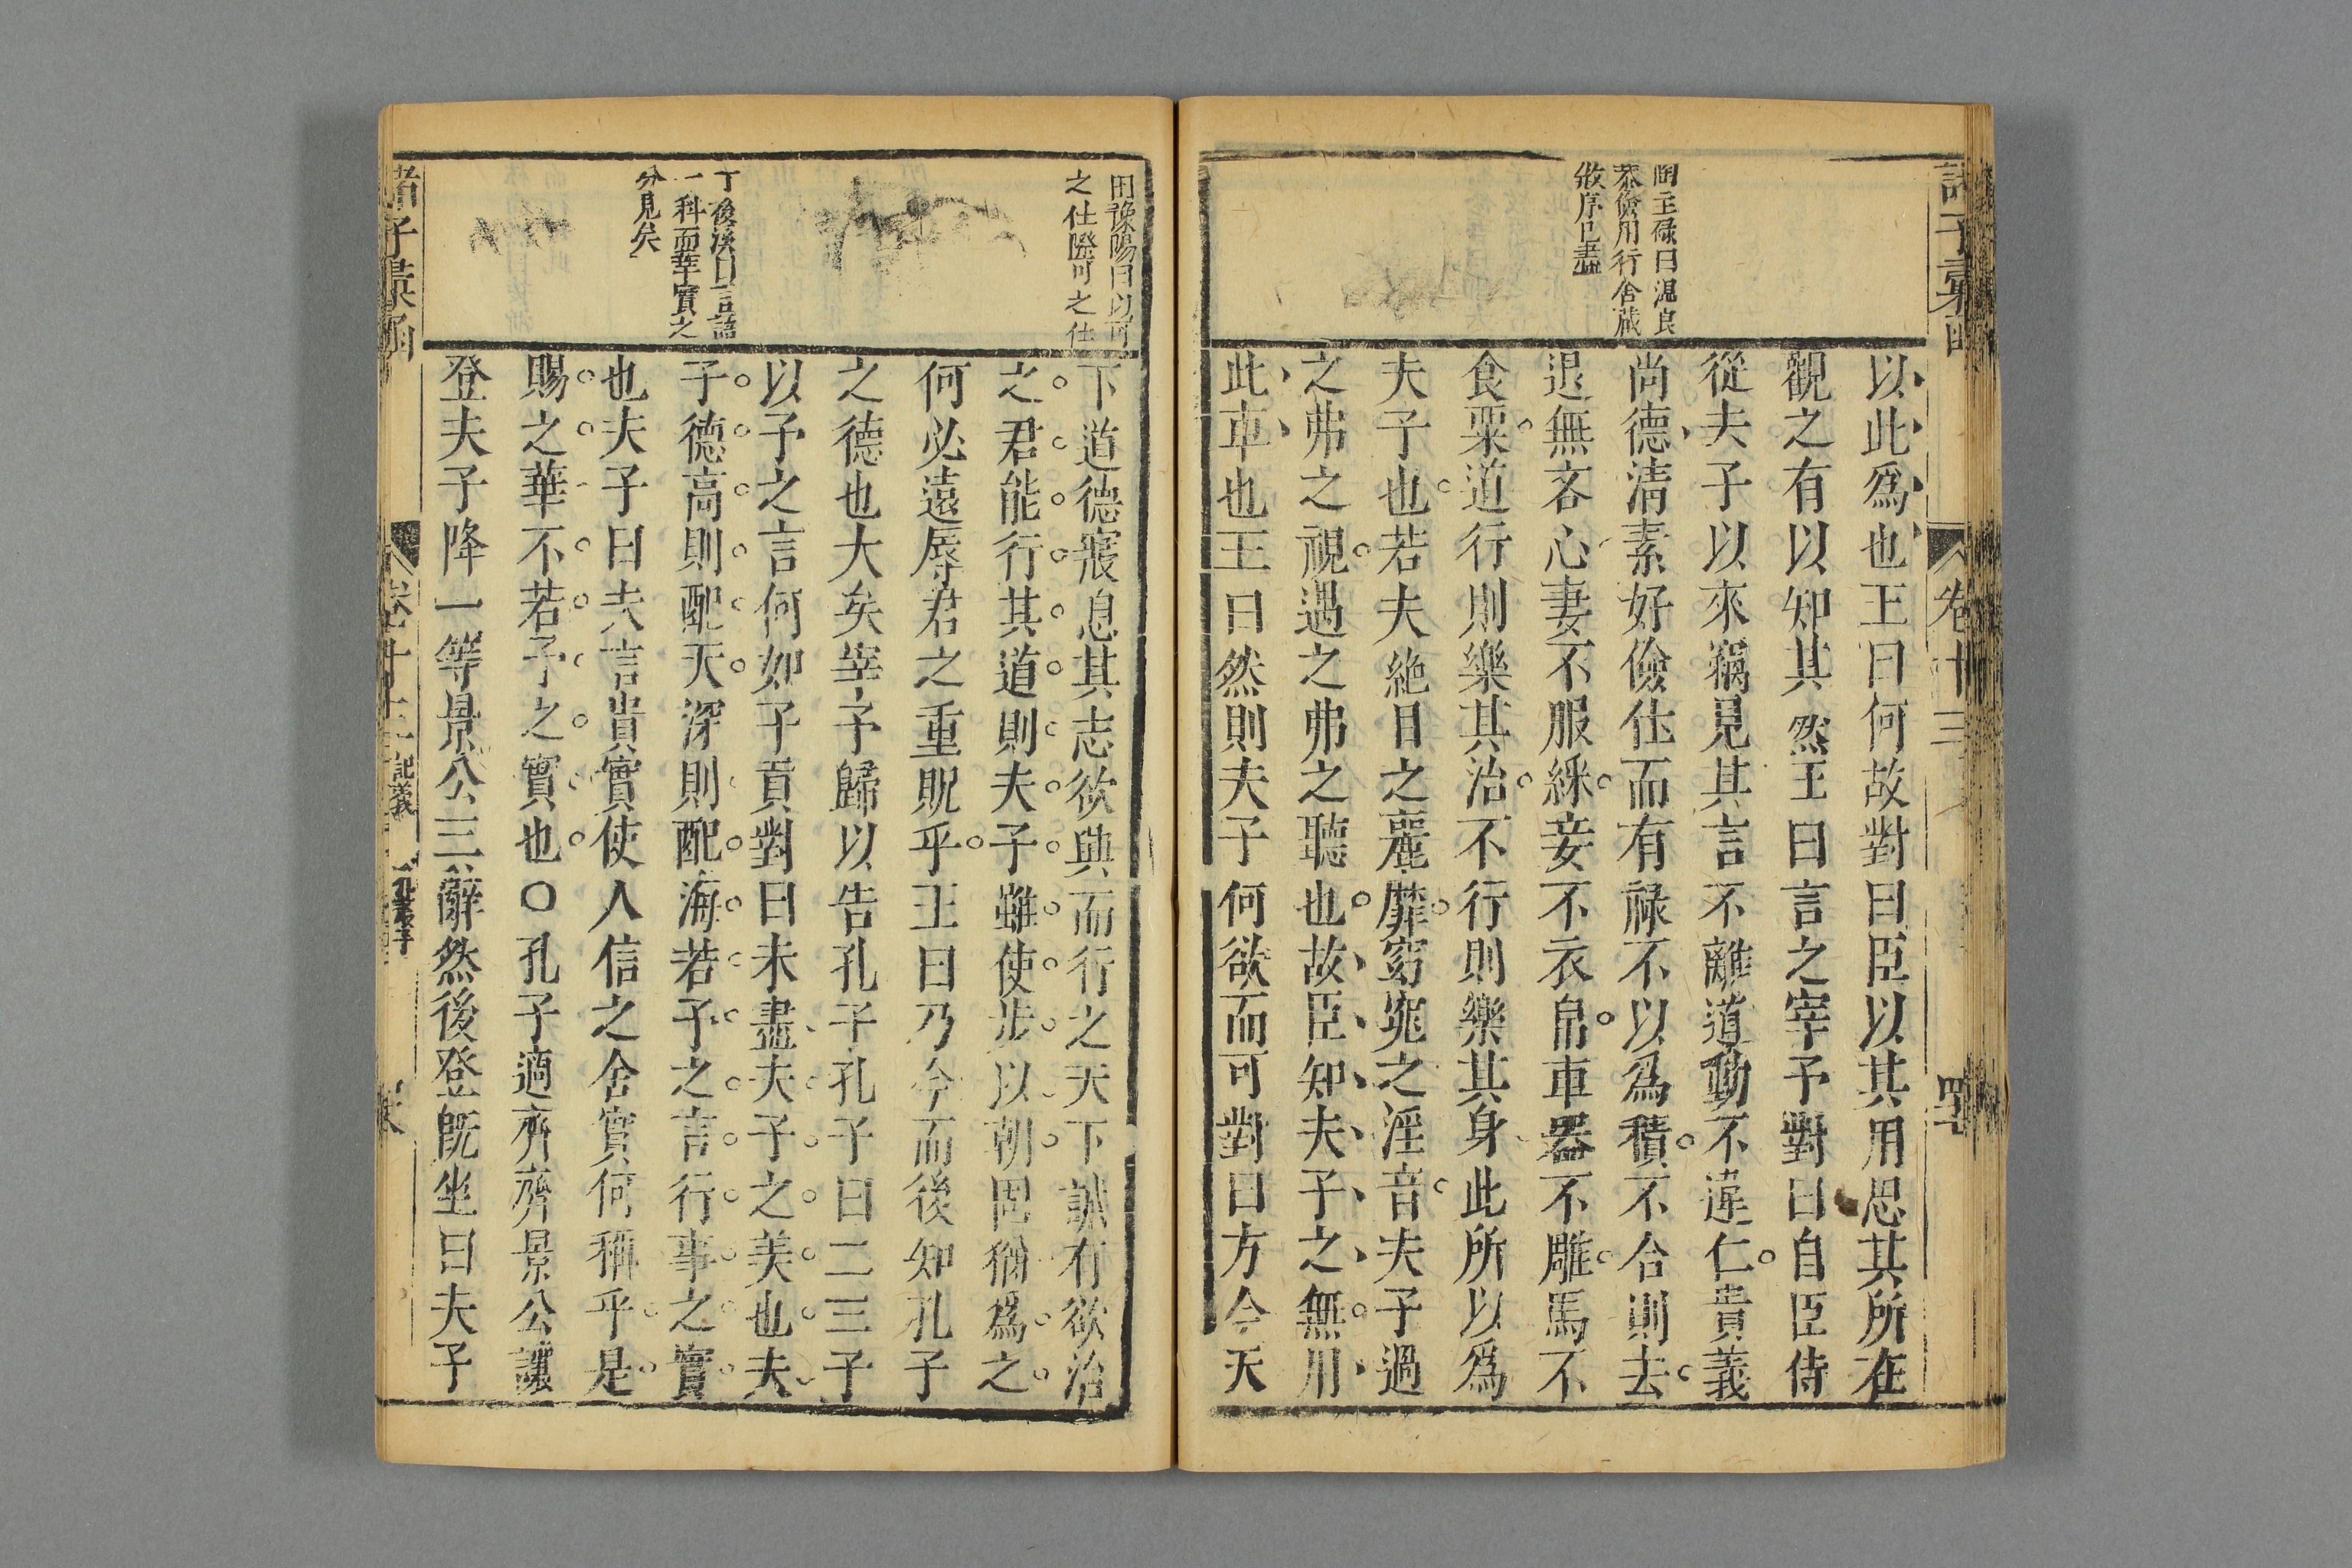 陶主祿曰溫良
恭儉用行舍藏
敘序已盡
以此爲也王曰何故對曰臣以其用思其所在
觀之有以知其然王曰言之宰予對曰自臣侍
從夫子以來竊見其言不離道動不違仁貴義
尚德淸素好儉仕而有祿不以爲積不合則去
退無吝心妻不服綵妾不衣帛車器不雕馬不
食粟道行則樂其治不行則樂其身此所以爲
夫子也若夫絶目之麗靡窈窕之淫音夫子過
之弗之視遇之弗之聽也故臣知夫子之無用
此車也王曰然則夫子何欲而可對曰方今天
卷十三
田豫陽曰以可
之仕際可之仕
丁後溪曰言語
一科而華實之
分見矣
下道德寢息其志欲興而行之天下誠有欲治
之君能行其道則夫子雖使步以朝固猶爲之
何必遠辱君之重貺乎王曰乃今而後知孔子
之德也大矣宰予歸以告孔子孔子曰二三子
以予之言何如子貢對曰未盡夫子之美也夫
子德高則配天深則配海若予之言行事之實
也夫子曰夫言貴實使人信之舍實何稱乎是
賜之華不若予之實也○孔子適齊齊景公讓
登夫子降一等景公三辭然後登旣坐曰夫子
卷十三 記義